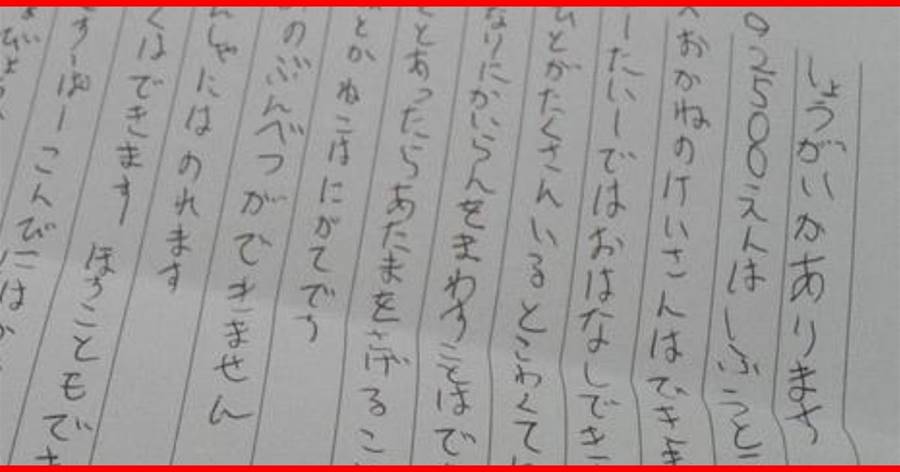 しょうがいかあります
の2500えんはしふうと
へおかねのけいさんはできま
ーたいーではおはなしでき
ひとがたくさんいるとこわくて
なりにかいらんをまわすことはで
とあったらあたまをさげるこ
とかねこはにがてです
のぶんべつができません
しゃにはのれます
くはできます ほうこともでき
すーぱーこんびにはか